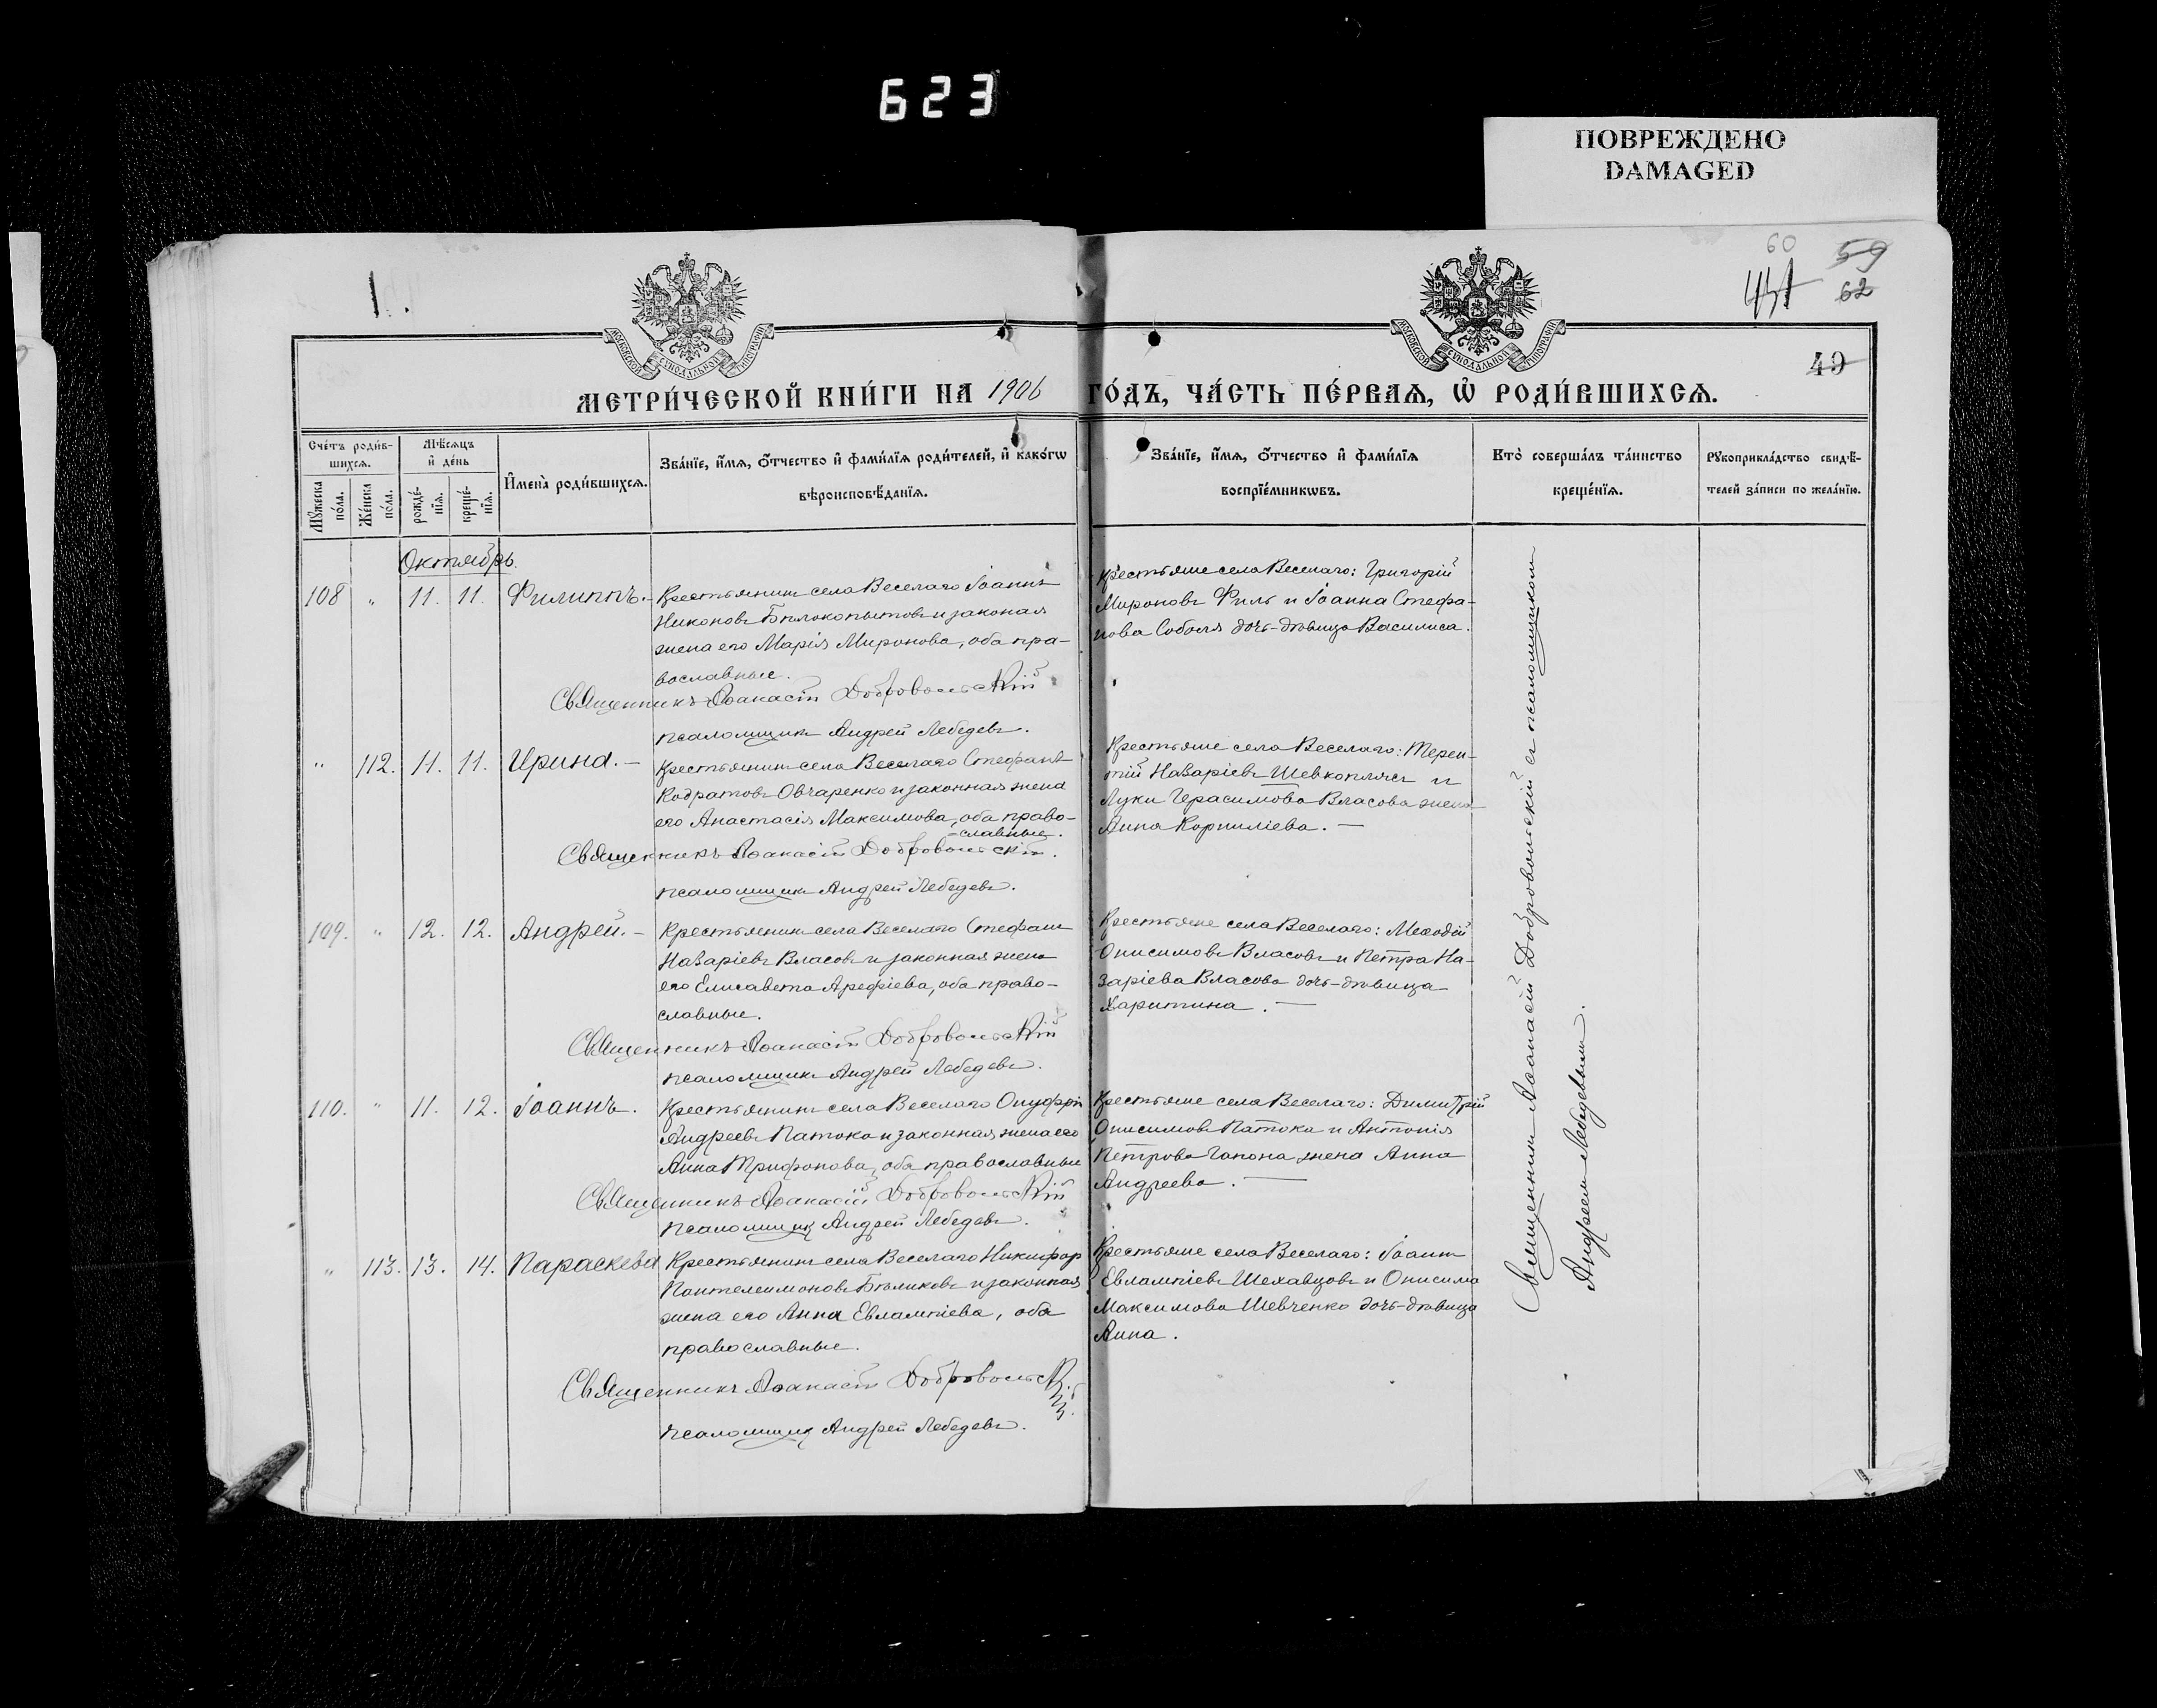 623
ПОВРЕЖДЕНО
DAMAGED
1.
60 59
62
49
МОСКОВСКОЙ СѴНОДАЛЬНОЙ ТИПОГРАФІИ
МОСКОВСКОЙ СѴНОДАЛЬНОЙ ТИПОГРАФІИ
МЕТРИ́ЧЕСКОЙ КНИ́ГИ НА 1906 ГО́ДЪ, ЧА́СТЬ ПЕ́РВАѦ, Ѽ РОДИ́ВШИХСѦ.
Сче́тъ роди́в-
шихсѧ.
Мѣ́сѧцъ
и҆ де́нь
Мꙋ́жеска
по́ла.
Же́нска
по́ла.
рожде́-
нїѧ.
креще́-
нїѧ.
И҆мена̀ роди́вшихсѧ.
Зва́нїе, и҆́мѧ, ѻ҆́тчество и҆ фами́лїѧ роди́телей, и҆ како́гѡ
вѣроисповѣ́данїѧ.
Зва́нїе, и҆́мѧ, ѻ҆́тчество и҆ фами́лїѧ
воспрїе́мникѡвъ.
Кто̀ соверша́лъ та́инство
креще́нїѧ.
Рꙋкоприкла́дство свидѣ́-
телей за́писи по жела́нїю.
Октябрь.
108 " 11. 11. Филиппъ.-
Крестьянинъ села Веселаго Іоаннъ
Никоновъ Бѣлокопытовъ и законая
жена его Марія Миронова, оба пра-
вославные.
Священникъ Аѳанасій Добровольскій
псаломщикъ Андрей Лебедевъ.
Крестьяне села Веселаго: Григорій
Мироновъ Филь и Іоанна Стефа-
нова Соболя дочь-дѣвица Василиса.
" 112. 11. 11. Ирина.-
Крестьянинъ села Веселаго Стефанъ
Кодратовъ Овчаренко и законная жена
его Анастасія Максимова, оба право-
-славные.
Священникъ Аѳанасій Добровольскій.
псаломщикъ Андрей Лебедевъ.
Крестьяне села Веселаго: Терен-
тій Назаріевъ Шевкоплясъ и
Луки Герасимова Власова жена
Анна Корниліева. —
109. " 12. 12. Андрей.-
Крестьянинъ села Веселаго Стефанъ
Назаріевъ Власовъ и законная жена
его Елисавета Арефіева, оба право-
славные.
Священникъ Аѳанасій Добровольскій
псаломщикъ Андрей Лебедевъ.
Крестьяне села Веселаго: Меѳодій
Онисимовъ Власовъ и Петра На-
заріева Власова дочь-дѣвица
Харитина. —
110. " 11. 12. Іоаннъ.
Крестьянинъ села Веселаго Онуфрій
Андреевъ Патока и законная жена его
Анна Трифонова, оба православные
Священникъ Аѳанасій Добровольскій
Псаломщикъ Андрей Лебедевъ.
Крестьяне села Веселаго: Димитрій
Онисимовъ Патока и Антонія
Петрова Гапона жена Анна
Андреева. —
" 113. 13. 14. Параскева
Крестьянинъ села Веселаго Никифоръ
Пантелеимоновъ Бѣликовъ и законная
жена его Анна Евлампіева, оба
православные.
Священникъ Аѳанасій Добровольскій.
псаломщикъ Андрей Лебедевъ.
Крестьяне села Веселаго: Іоаннъ
Евлампіевъ Шехавцовъ и Онисима
Максимова Шевченко дочь-дѣвица
Анна.
Священникъ Аѳанасій Добровольскій съ псаломщикомъ
Андреемъ Лебедевымъ.